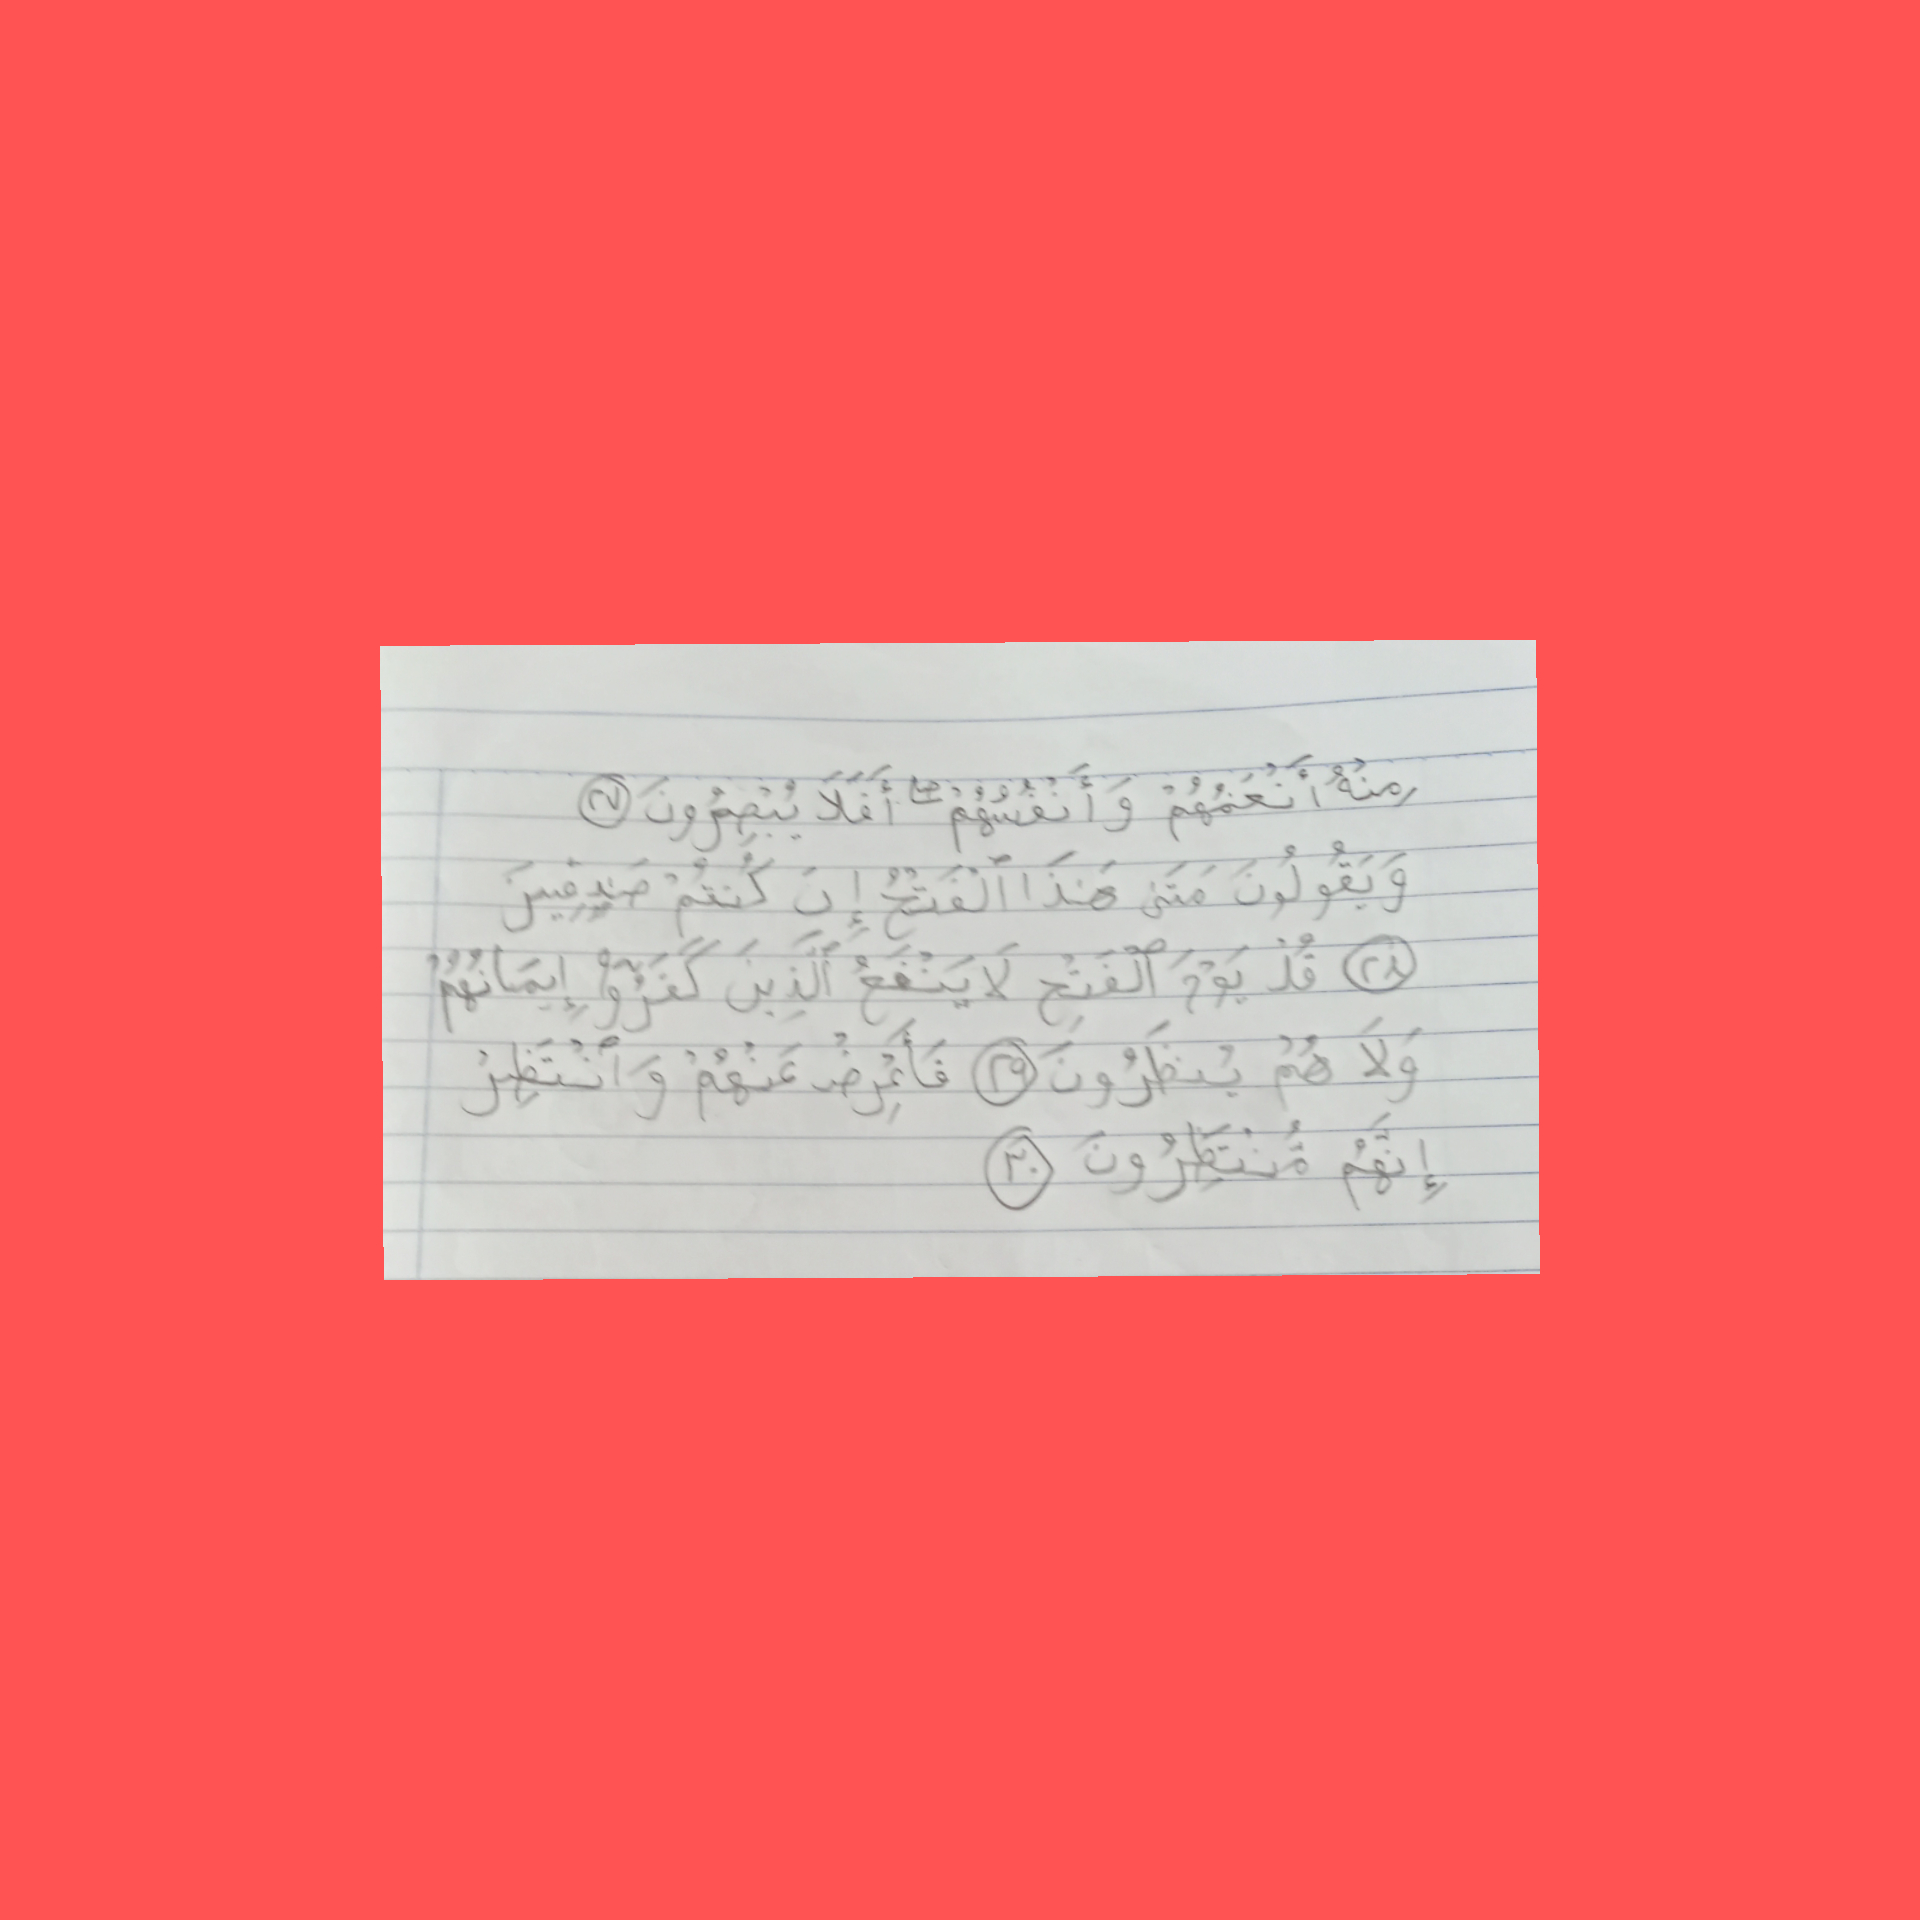 مِنْهُ أَنْعَٰمُهُمْ وَأَنْفُسُهُمْ ۖ أَفَلَا يُبْصِرُونَ ٢٧
وَيَقُولُونَ مَتَىٰ هَٰذَا ٱلْفَتْحُ إِن كُنتُمْ صَٰدِقِينَ
٢٨ قُلْ يَوْمَ ٱلْفَتْحِ لَا يَنْفَعُ ٱلَّذِينَ كَفَرُوٓا۟ إِيمَانُهُمْ
وَلَا هُمْ يُنظَرُونَ ٢٩ فَأَعْرِضْ عَنْهُمْ وَٱنْتَظِرْ
إِنَّهُم مُّنْتَظِرُونَ ٣٠